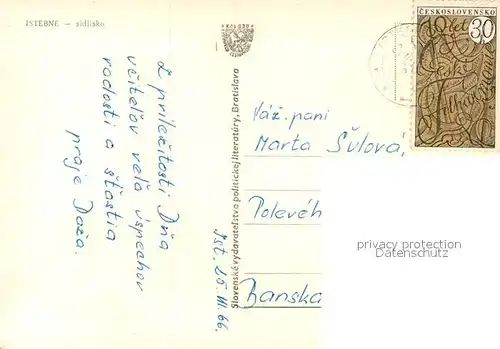 ISTEBNE – sídlisko
Z príležitosti Dňa
učiteľov veľa úspechov
radosti a šťastia
praje Daža.
Ist. 25. III. 66.
Slovenské vydavateľstvo politickej literatúry, Bratislava
ČESKOSLOVENSKO
30
Váž. pani
Marta Šulová,
Polevéh
Banska
privacy protection
Datenschutz